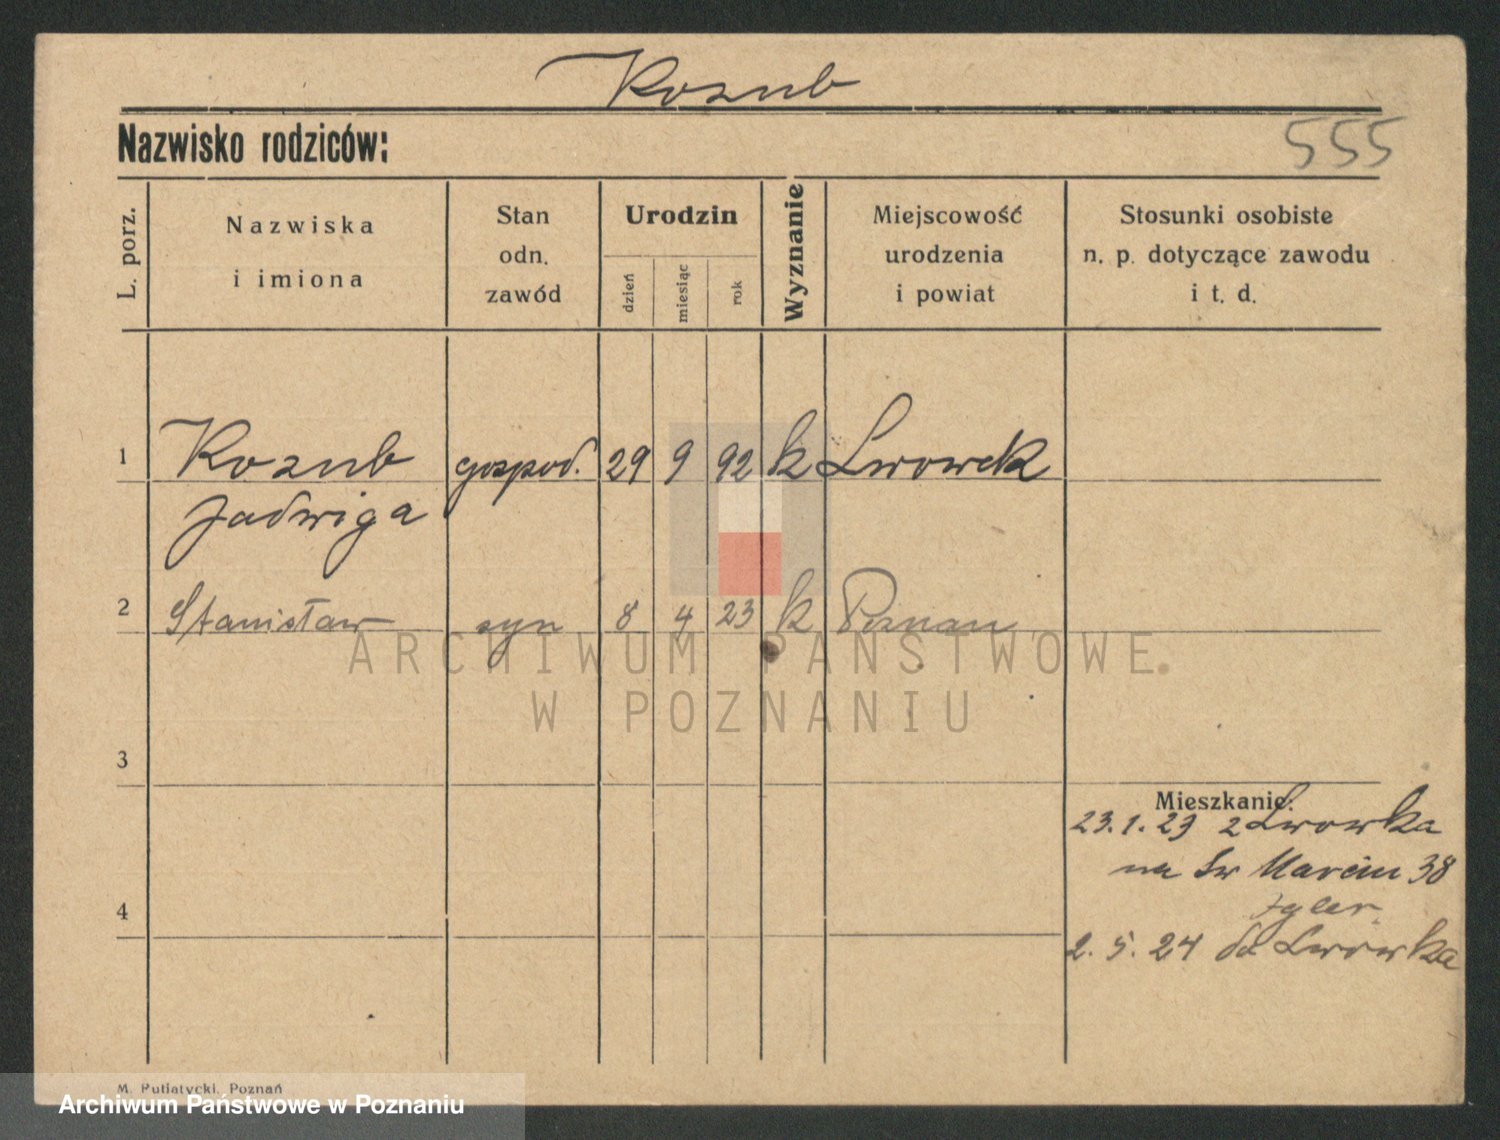 Kozub
Nazwisko rodziców:
555
L. porz.
Nazwiska i imiona
Stan odn. zawód
Urodzin
dzień
miesiąc
rok
Wyznanie
Miejscowość urodzenia i powiat
Stosunki osobiste n. p. dotyczące zawodu i t. d.
1 Kozub gospod. 29 9 92 k Lwowek
Jadwiga
2 Stanisław syn 8 4 23 k Poznan
ARCHIWUM PAŃSTWOWE
W POZNANIU
3
Mieszkanie:
23.1.23 z Lwowka
na Sw Marcin 38
4
2.5.24 do Lwówka
M. Putiatycki, Poznań
Archiwum Państwowe w Poznaniu